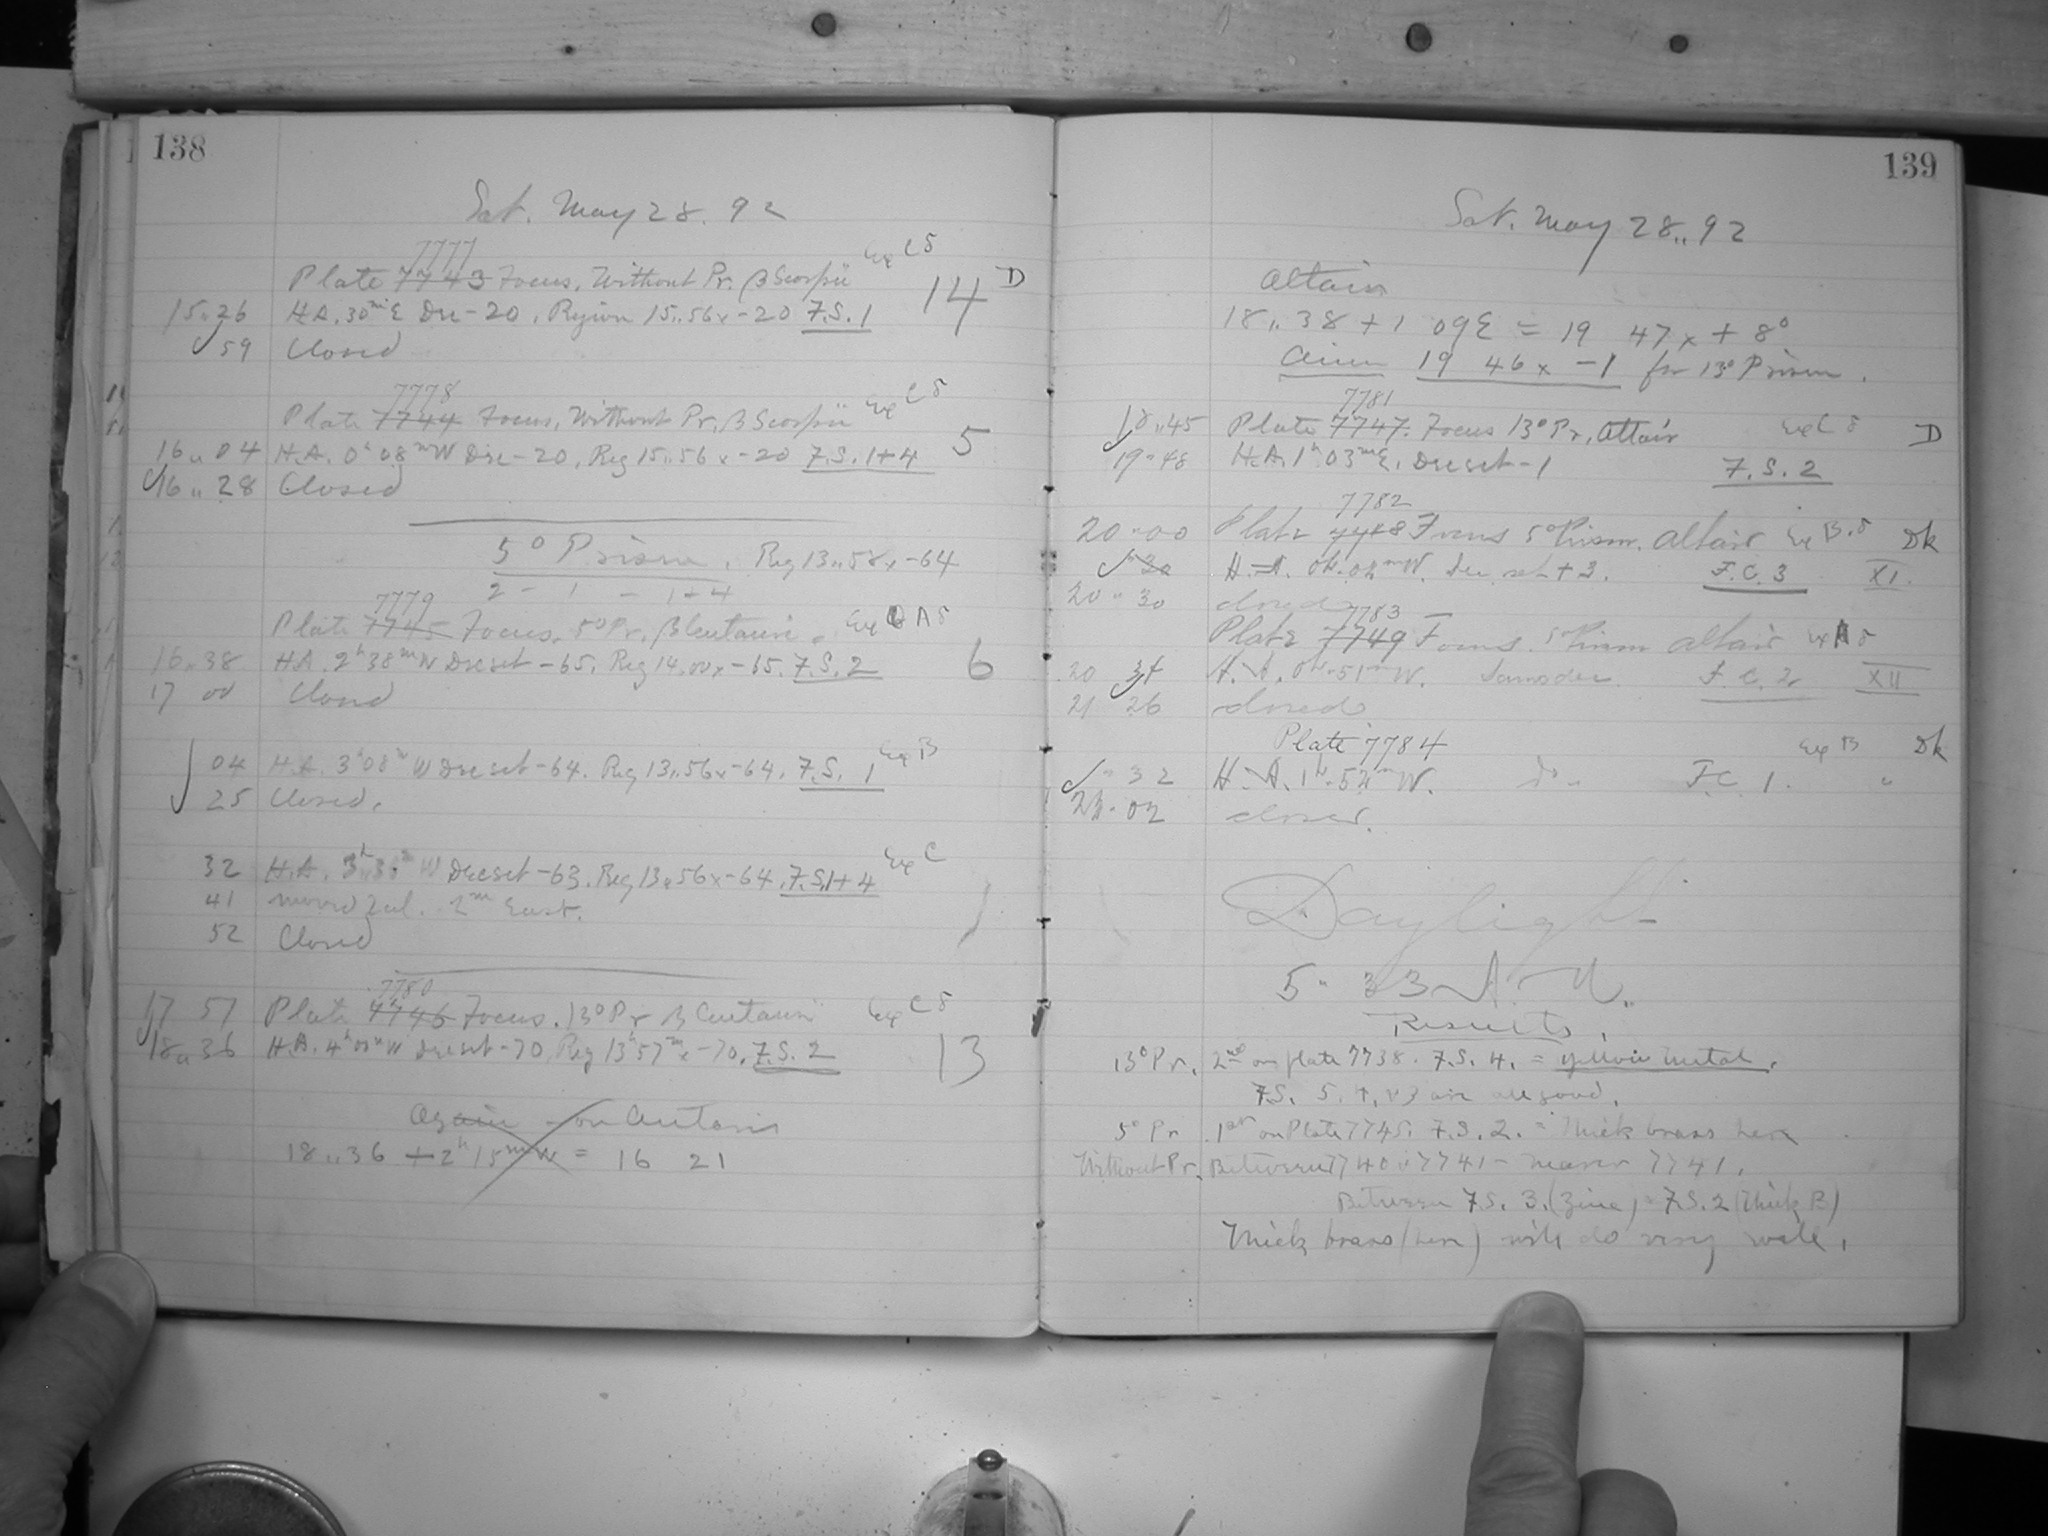 138
Sat. May 28. 92
7777
Plate 7743 Focus, Without Pr. β Scorpii Exp C 5 14 D
15..26 H.A. 30m E Dec -20. Region 15..56 x -20 F.S. 1
59 Closed
7778
Plate 7744 Focus, Without Pr. β Scorpii Exp C 5
16..04 H.A. 0h 08m W Dec -20, Reg 15..56 x -20 F.S. 1+4 5
16..28 Closed
5° Prism. Reg 13..58 x -64
2 - 1 - 1+4
7779
Plate 7745 Focus. 5° Pr. β Centauri. Exp A 5
16..38 H.A. 2h 38m W Dec set -65. Reg 14..00 x -65. F.S. 2 6
17 00 Closed
04 H.A. 3h 08m W Dec set -64. Reg 13..56 x -64. F.S. 1 Exp B
25 Closed.
32 H.A. W Dec set -63. Reg 13..56 x -64. F.S. 1+4 Exp C
41 moved 2m East.
52 Closed
7780
17 57 Plate 7746 Focus. 13° Pr β Centauri Exp C 5
18..36 H.A. 4h W Dec set -70, Reg 13h 57m x -70, F.S. 2 13
Again on Centauri
18..36 + 2h 15m W = 16 21
139
Sat. May 28..92
Altair
18..38 + 1 09 E = 19 47 x + 8°
19 46 x -1 for 13° Prism.
7781
18..45 Plate 7747. Focus 13° Pr. Altair Exp C 5 D
19-48 H.A. 1h 03m E. Dec set -1 F.S. 2
7782
20-00 Plate 7748 Focus 5° Prism. Altair Exp B. 5 Dk
30 H.A. W. Dec. set + 3. F.C. 3 XI.
20-30 closed
7783
Plate 7749 Focus. 5° Prism Altair Exp A 5
20 34 H.A. 0h-51m W. Same dec. F.C. 2 XII
21 26 closed
Plate 7784 Exp B Dk
" 32 H.A. 1h-52m W. Do F.C. 1. "
22-02 closed.
Daylight
5-33 A.M.
Results.
13° Pr. 2nd on plate 7738. F.S. 4. = yellow metal.
F.S. 5, 4, & 3 are all good.
5° Pr 1st on Plate 7745. F.S. 2. = Thick brass here
Without Pr. Between 7740 & 7741 - nearer 7741.
Between F.S. 3. (Zinc) & F.S. 2 (Thick B)
Thick brass (here) will do very well.